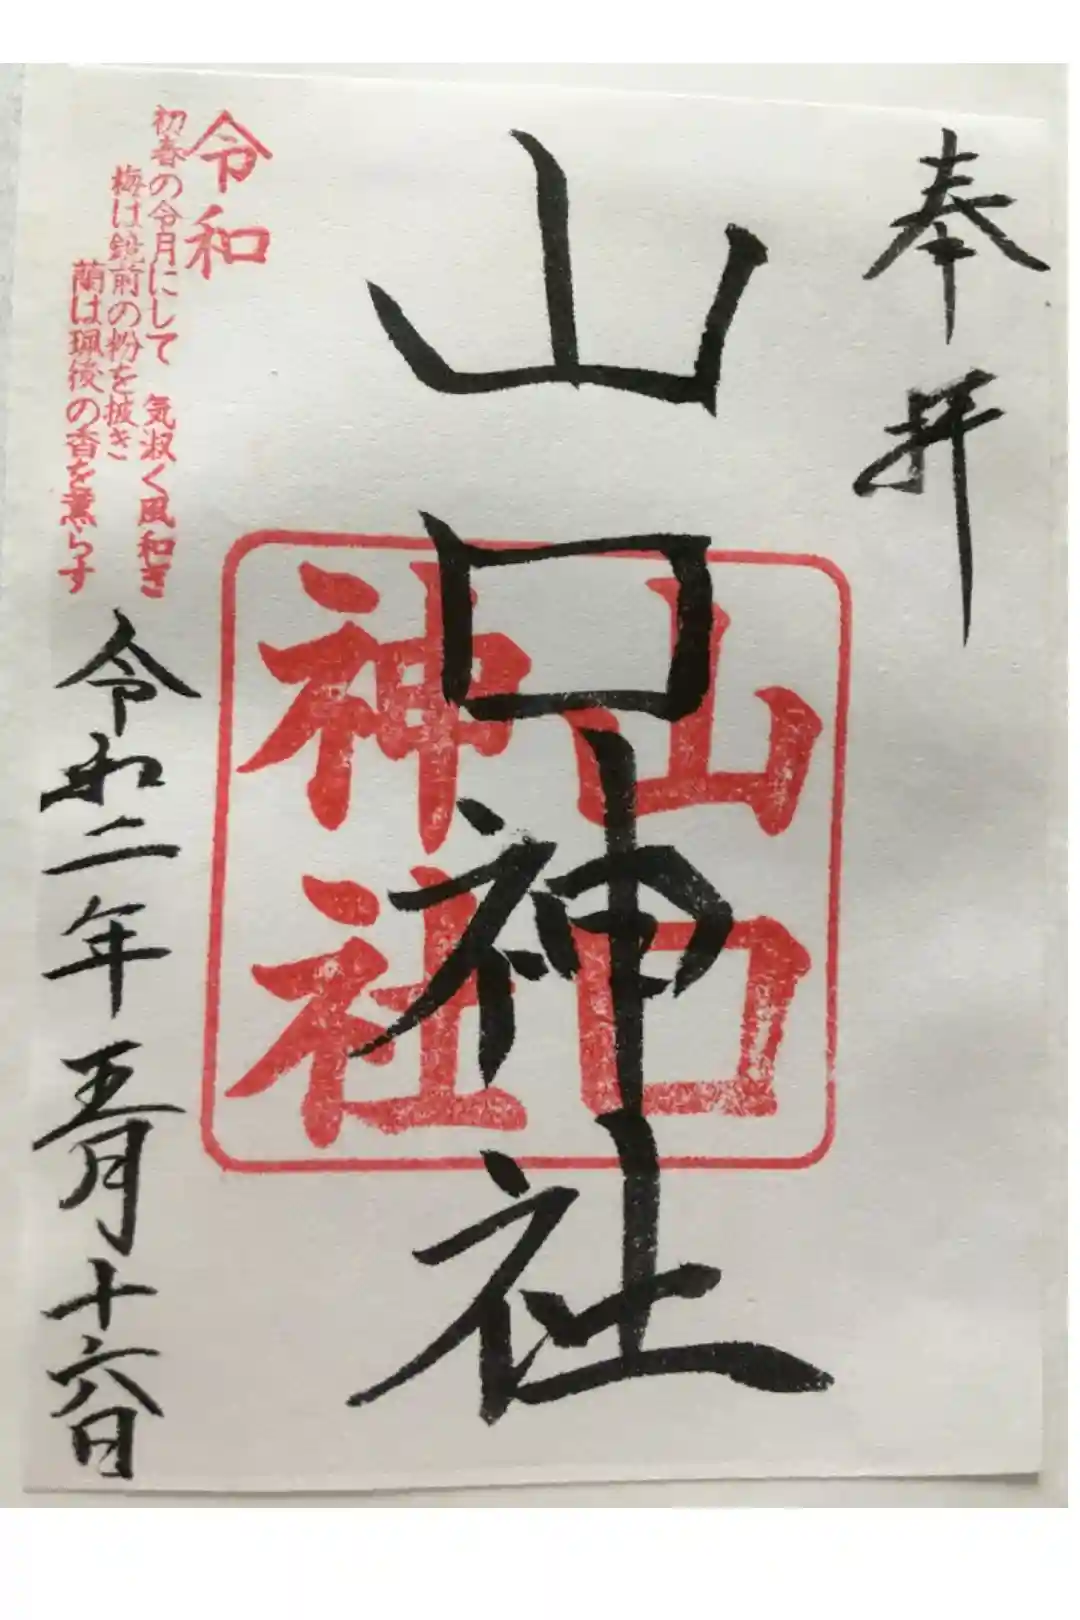 奉拝
山口神社
山口
神社
令和
初春の令月にして 気淑く風和ぎ
梅は鏡前の粉を披き
蘭は珮後の香を薫らす
令和二年五月十六日